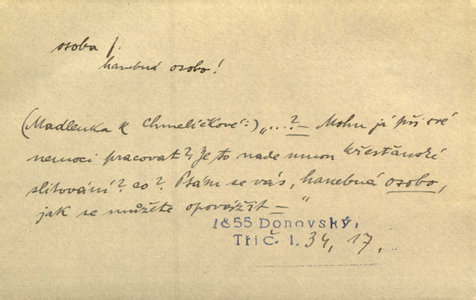 osoba f.
hanebná osobo!
(Madlenka k Chmelíčkové:) „...? — Mohu já při své
nemoci pracovat? Je to nade mnou křesťanské
slitování? co? Ptám se vás, hanebná osobo,
jak se můžete opovážit — "
1855 Donovský,
Třič. I. 34, 17.